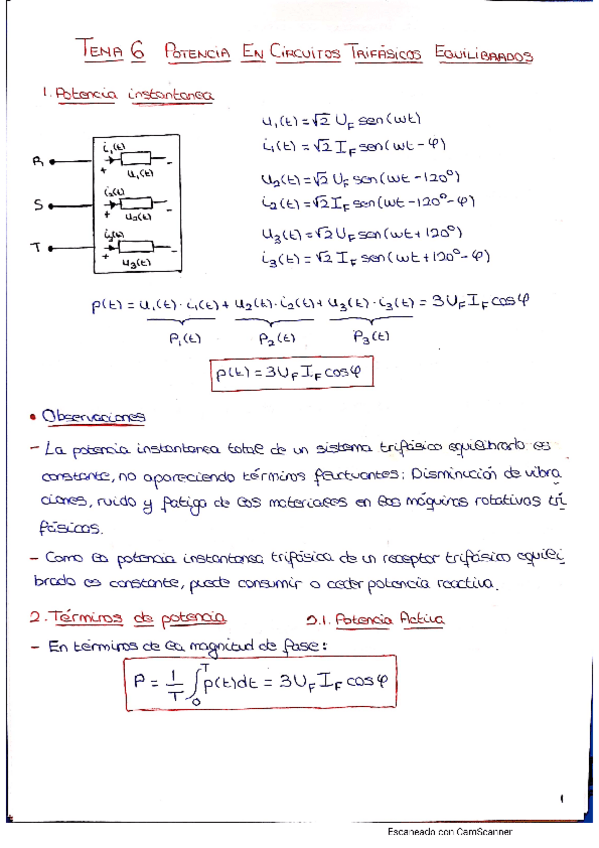 TEMA 6 POTENCIA EN CIRCUITOS TRIFÁSICOS EQUILIBRADOS
1. Potencia instantanea
u₁(t) = √2 U_F sen(ωt)
i₁(t) = √2 I_F sen(ωt - φ)
u₂(t) = √2 U_F sen(ωt - 120°)
i₂(t) = √2 I_F sen(ωt - 120° - φ)
u₃(t) = √2 U_F sen(ωt + 120°)
i₃(t) = √2 I_F sen(ωt + 120° - φ)
i₁(t)
R
+ -
u₁(t)
i₂(t)
S
+ -
u₂(t)
i₃(t)
T
+ -
u₃(t)
p(t) = u₁(t) · i₁(t) + u₂(t) · i₂(t) + u₃(t) · i₃(t) = 3 U_F I_F cos φ
P₁(t) P₂(t) P₃(t)
p(t) = 3 U_F I_F cos φ
• Observaciones
- La potencia instantanea total de un sistema trifásico equilibrado es
constante, no apareciendo términos fluctuantes: Disminución de vibra
ciones, ruido y fatiga de los materiales en las máquinas rotativas tri
fásicas.
- Como la potencia instantanea trifásica de un receptor trifásico equili
brado es constante, puede consumir o ceder potencia reactiva.
2. Términos de potencia 2.1. Potencia Activa
- En términos de la magnitud de fase:
P = 1/T ∫₀ᵀ p(t)dt = 3 U_F I_F cos φ
1
Escaneado con CamScanner